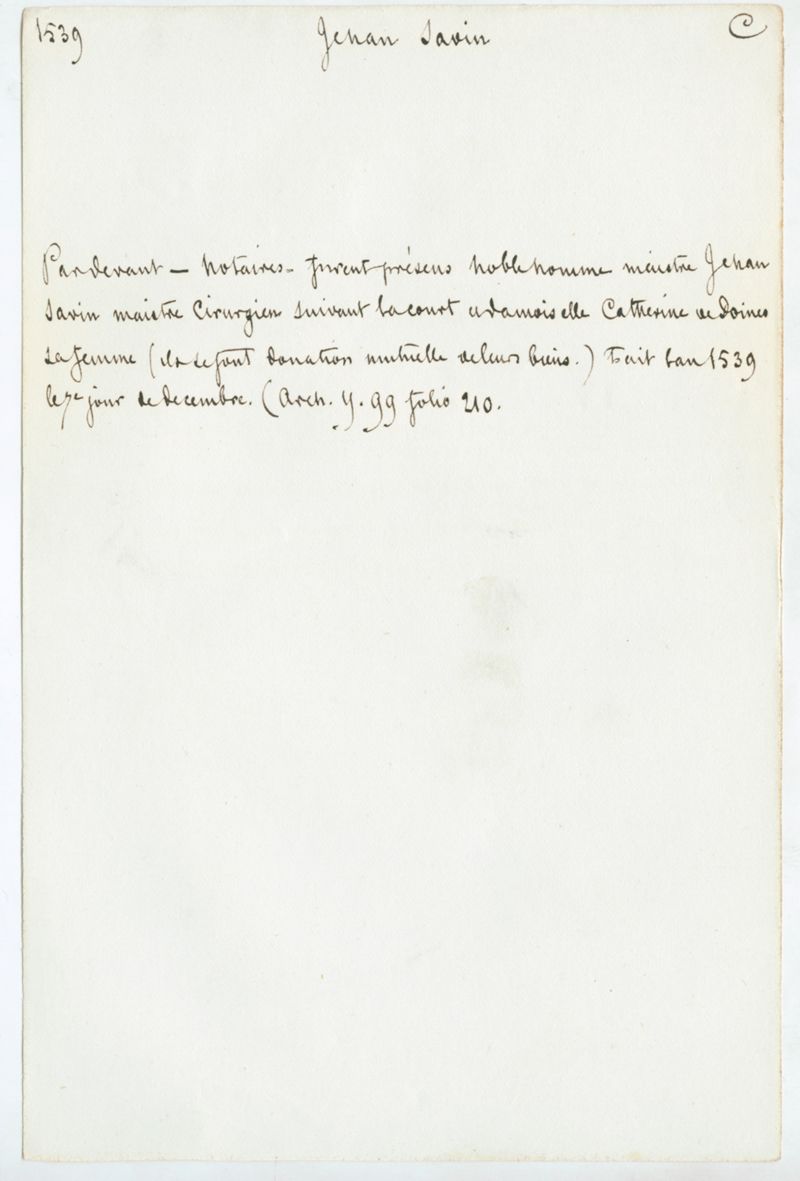 1539 Jehan Savin C
Pardevant — notaires - furent présens noble homme maistre Jehan
Savin maistre Cirurgien suivant la court et damoiselle Catherine de Doines
sa femme (ils se font donation mutuelle de leurs biens.) Fait l'an 1539
le 7e jour de decembre. (Arch. Y. 99 folio 210.